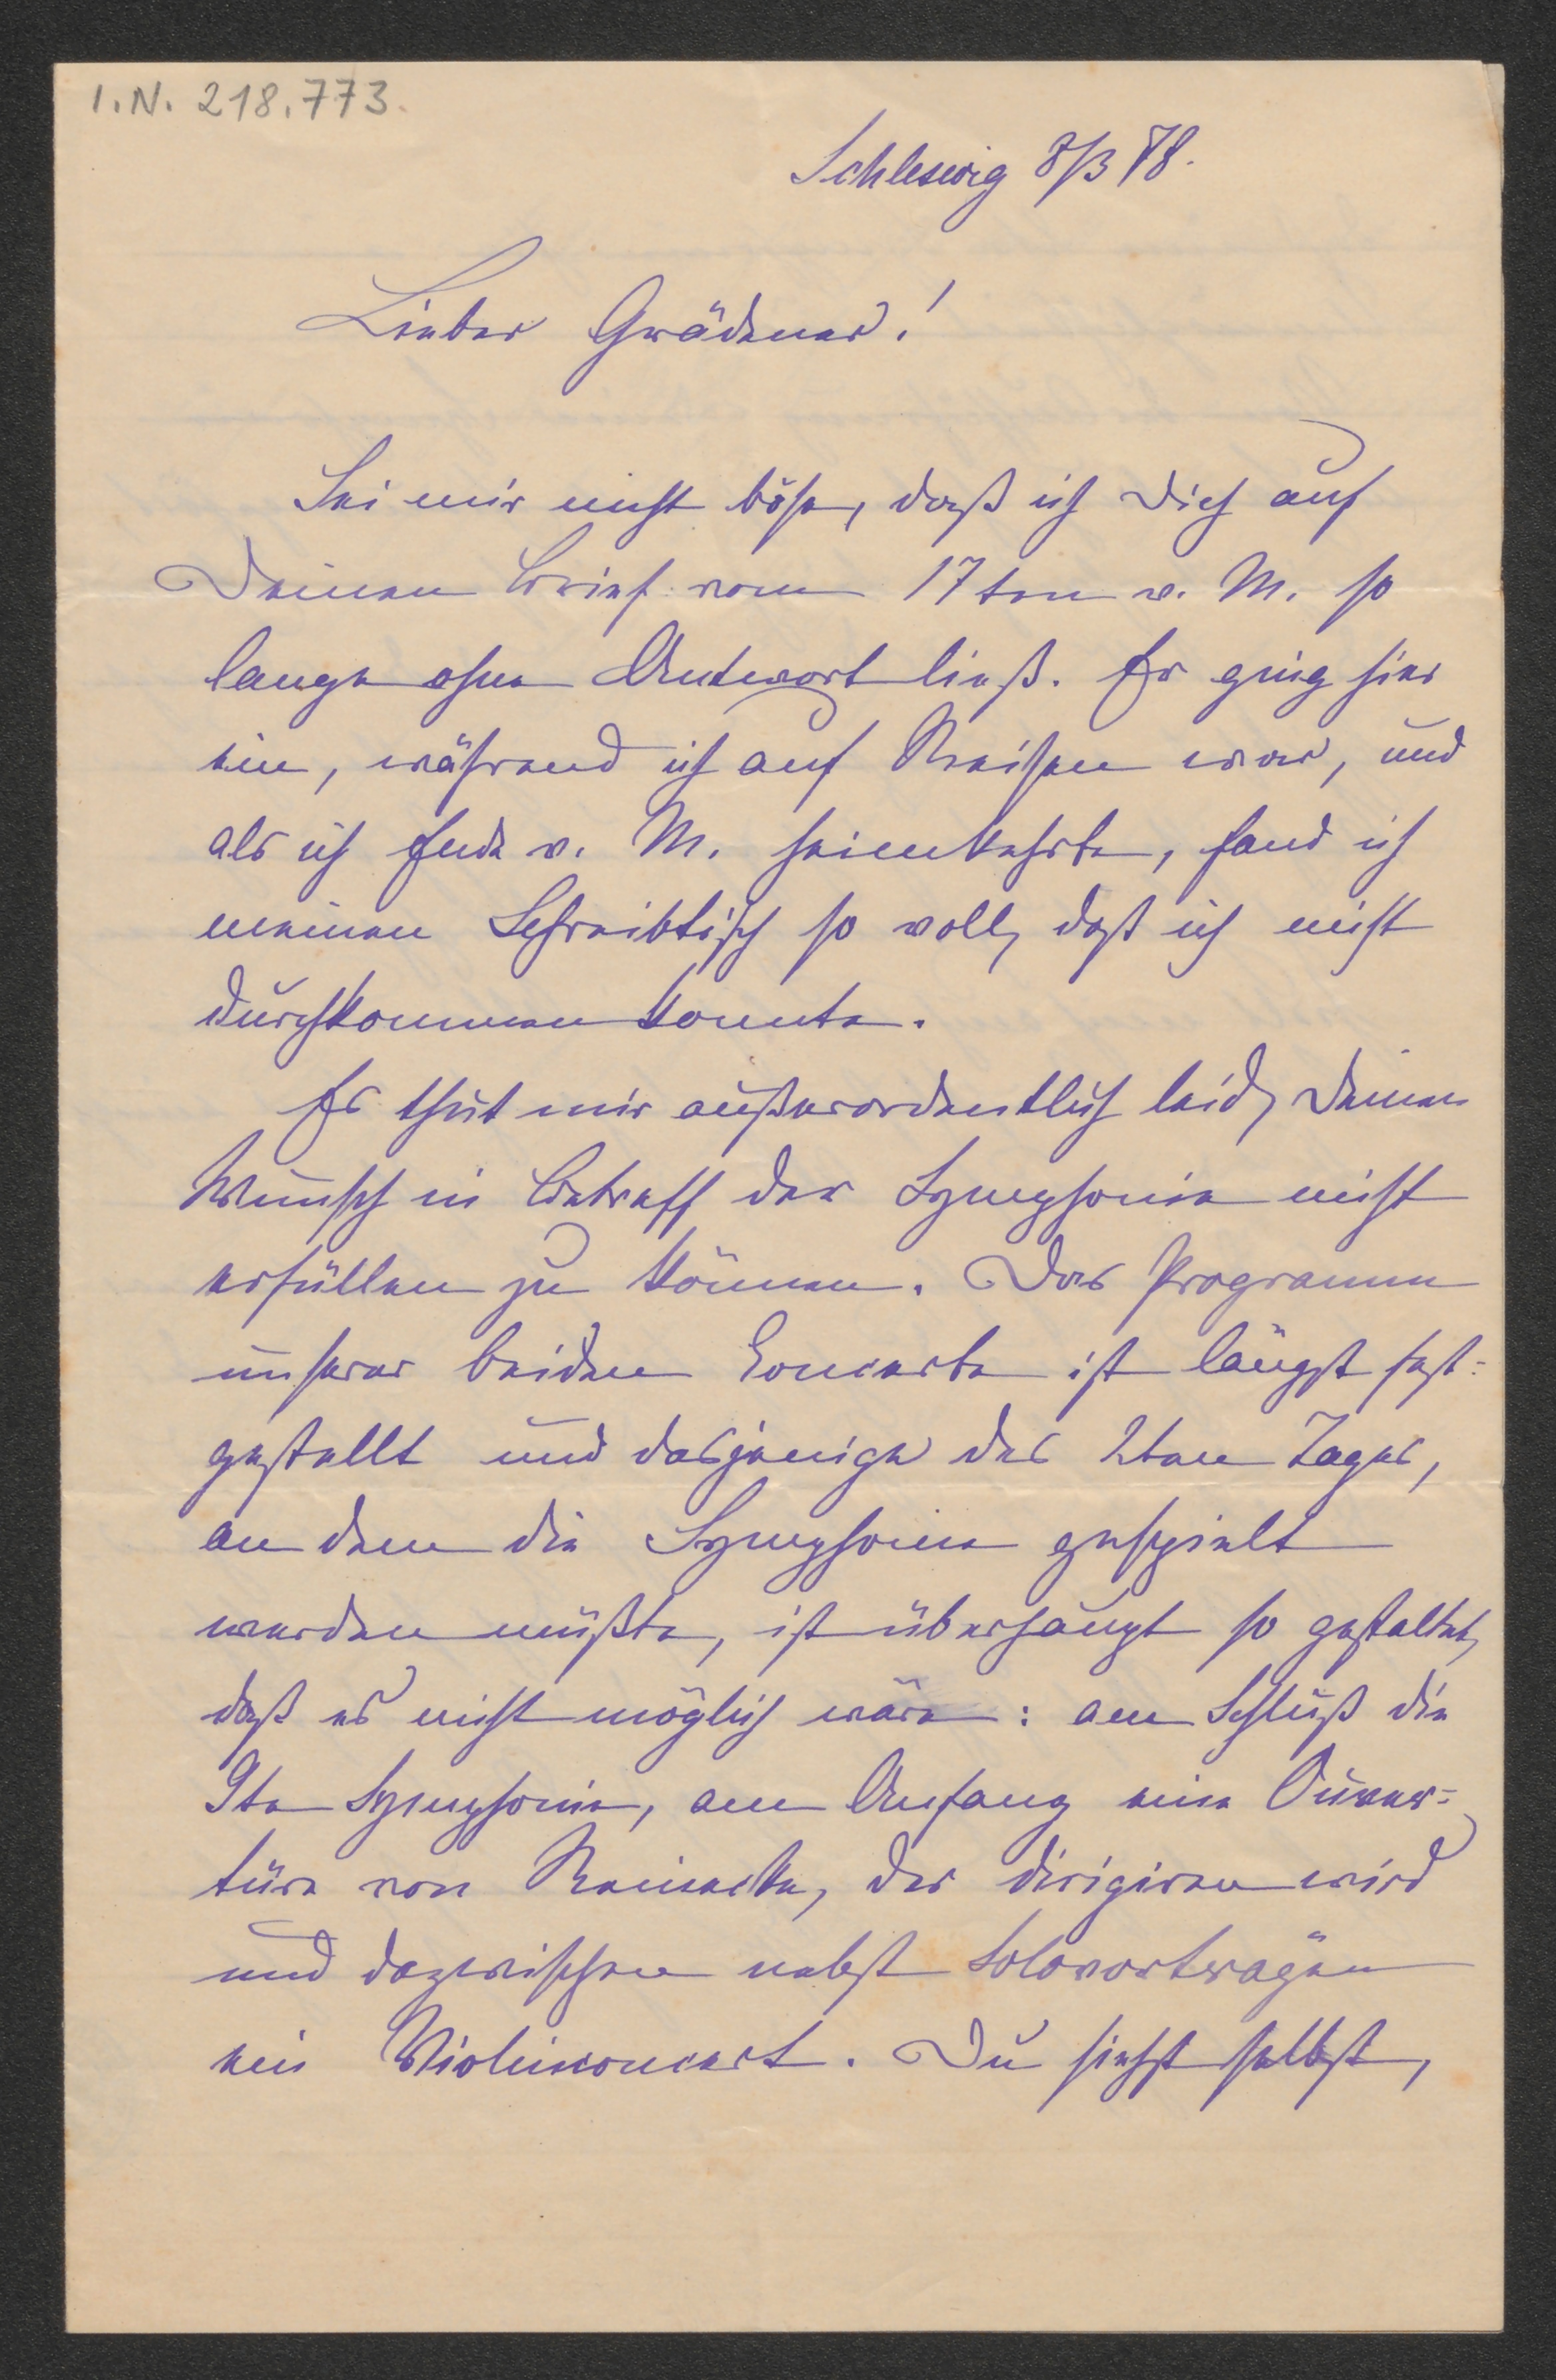 I.N. 218.773.
Schleswig 8/3 78.
Lieber Grädener!
Sei mir nicht böse, daß ich Dich auf
Deinen Brief vom 17ten v. M. so
lange ohne Antwort ließ. Er ging hier
ein, während ich auf Reisen war, und
als ich Ende v. M. heimkehrte, fand ich
meinen Schreibtisch so voll, daß ich nicht
durchkommen konnte.
Es thut mir außerordentlich leid, Deinen
Wunsch in Betreff der Symphonie nicht
erfüllen zu können. Das Programm
unserer beiden Concerte ist längst fest-
gestellt und dasjenige des 2ten Tages,
an dem die Symphonie gespielt
werden müßte, ist überhaupt so gestaltet,
daß es nicht möglich wäre: am Schluß die
9te Symphonie, am Anfang eine Ouver-
türe von Reinecke, der dirigiren wird
und dazwischen nebst Solovorträgen
ein Violinconcert. Du siehst selbst,